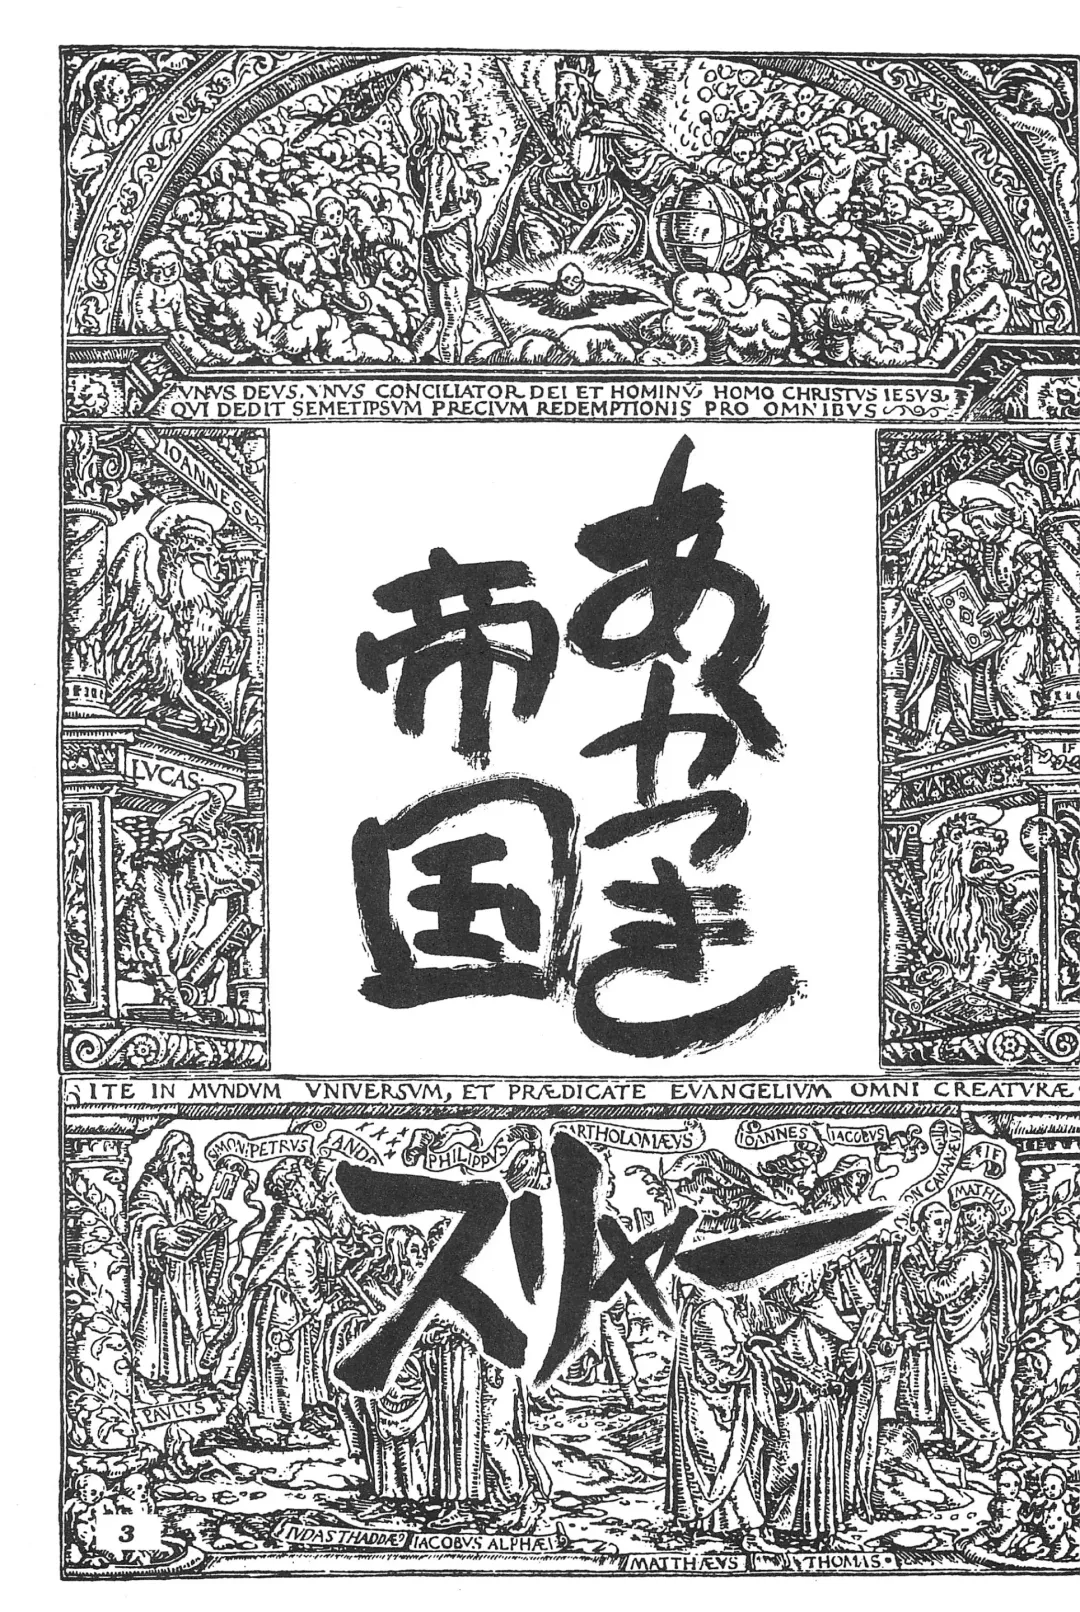 VNVS DEVS. VNVS CONCILIATOR DEI ET HOMINV̄ HOMO CHRISTVS IESVS.
QVI DEDIT SEMETIPSVM PRECIVM REDEMPTIONIS PRO OMNIBVS
IOANNES
あかつき
帝国
LVCAS
MARCVS
IF
ITE IN MVNDVM VNIVERSVM, ET PRÆDICATE EVANGELIVM OMNI CREATVRÆ
SIMON PETRVS
ANDR
PHILIPPVS
BARTHOLOMÆVS
IOANNES
IACOBVS
ON CANANÆVS
IF
MATHIAS
スリャー
PAVLVS
IVDAS THADDÆ?
IACOBVS ALPHÆI
MATTHÆVS
THOMAS
3